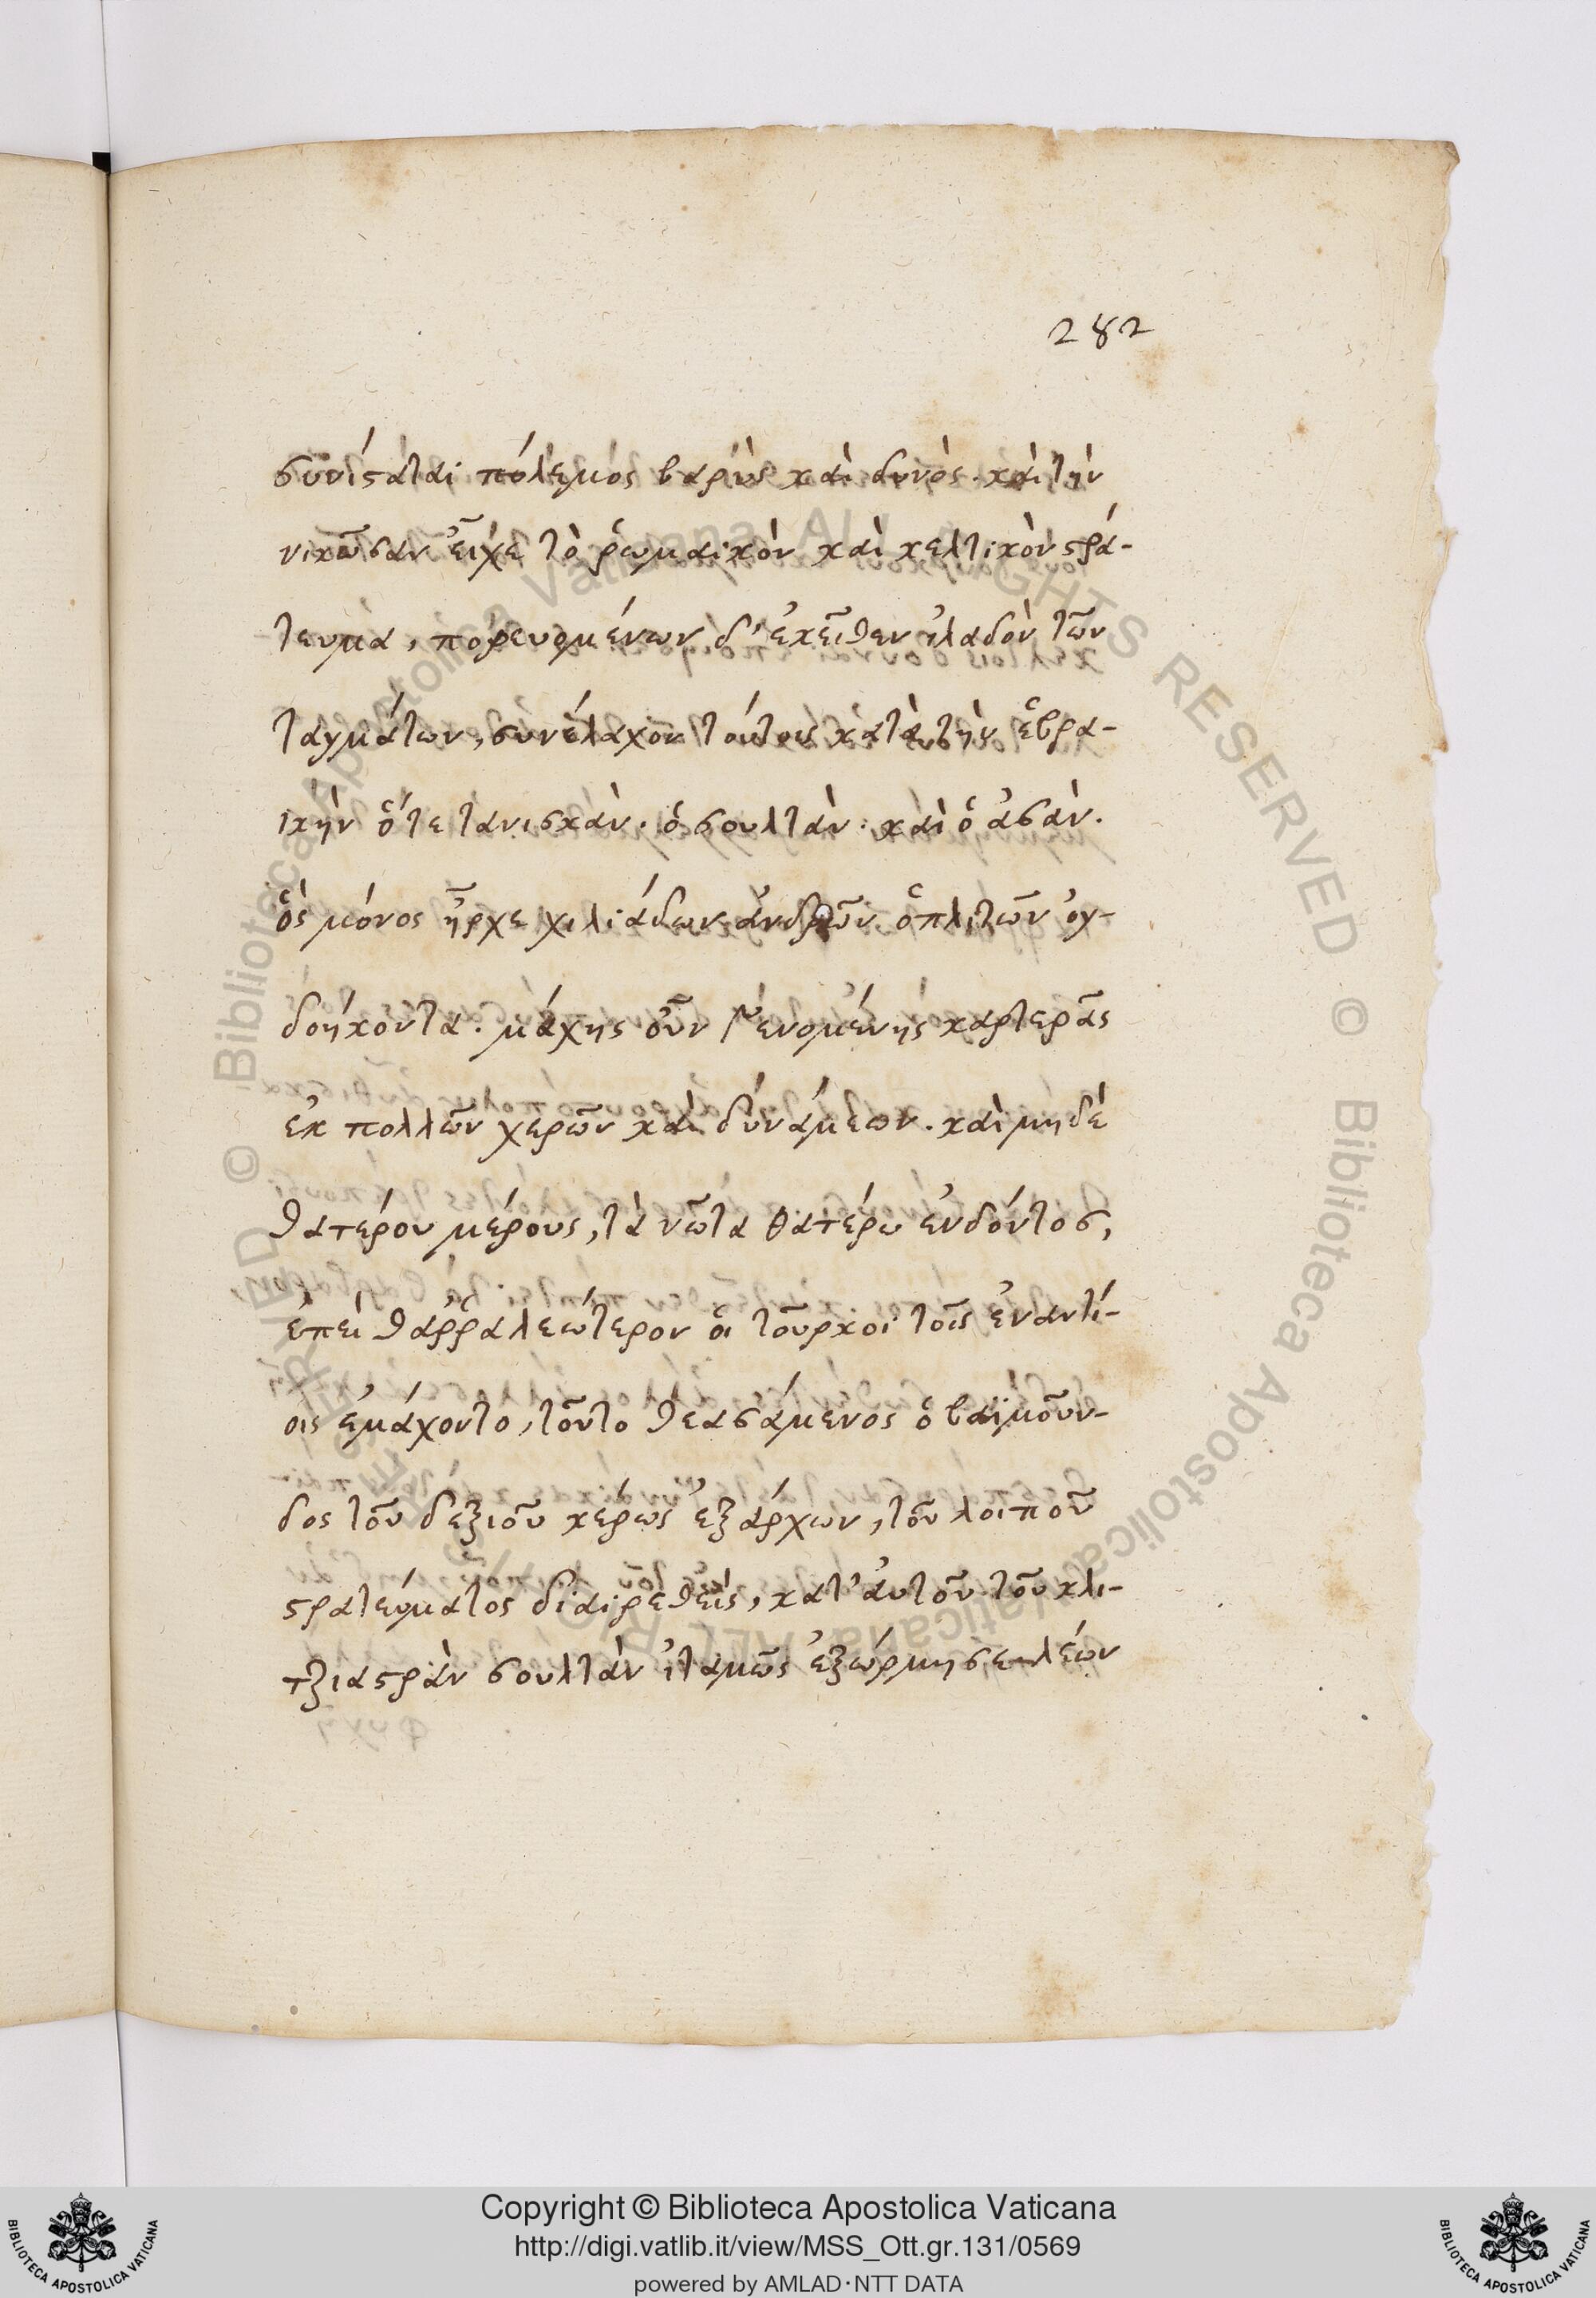 282
συνίσταται πόλεμος βαρὺς καὶ δεινὸς. καὶ τὴν
νικῶσαν εἶχε τὸ ῥωμαικὸν καὶ κελτικὸν στρά-
τευμα, πορευομένων δ' ἐκεῖθεν ἰλαδὸν τῶν
ταγμάτων, συνέλαχον τούτοις κατὰ τὴν ἑβρα-
ικὴν ὅτε τανισκὰν. ὁ σουλτὰν. καὶ ὁ ἀσὰν.
ὃς μόνος ἦρχε χιλιάδων ἀνδρῶν ὁπλιτῶν ὀγ-
δοήκοντα. μάχης οὖν γενομένης καρτερᾶς
ἐκ πολλῶν χερῶν καὶ δυνάμεων. καὶ μηδὲ
θατέρου μέρους, τὰ νῶτα θατέρω ἐνδόντος,
ἐπεὶ θαῤῥαλεώτερον οἱ τοῦρκοι τοῖς ἐναντί-
οις ἐμάχοντο, τοῦτο θεασάμενος ὁ βαϊμοῦν-
δος τοῦ δεξιοῦ κέρως ἐξάρχων, τοῦ λοιποῦ
στρατεύματος διαιρεθεὶς, κατ' αὐτοῦ τοῦ κλι-
τζιαστρὰν σουλτὰν ἰταμῶς ἐξώρμησε λέων
Copyright © Biblioteca Apostolica Vaticana
http://digi.vatlib.it/view/MSS_Ott.gr.131/0569
powered by AMLAD·NTT DATA